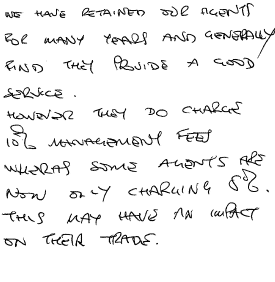 WE HAVE RETAINED OUR AGENTS
FOR MANY YEARS AND GENERALLY
FIND THEY PROVIDE A GOOD
SERVICE.
HOWEVER THEY DO CHARGE
10% MANAGEMENT FEES
WHERAS SOME AGENTS ARE
NOW ONLY CHARGING 8%.
THIS MAY HAVE AN IMPACT
ON THEIR TRADE.